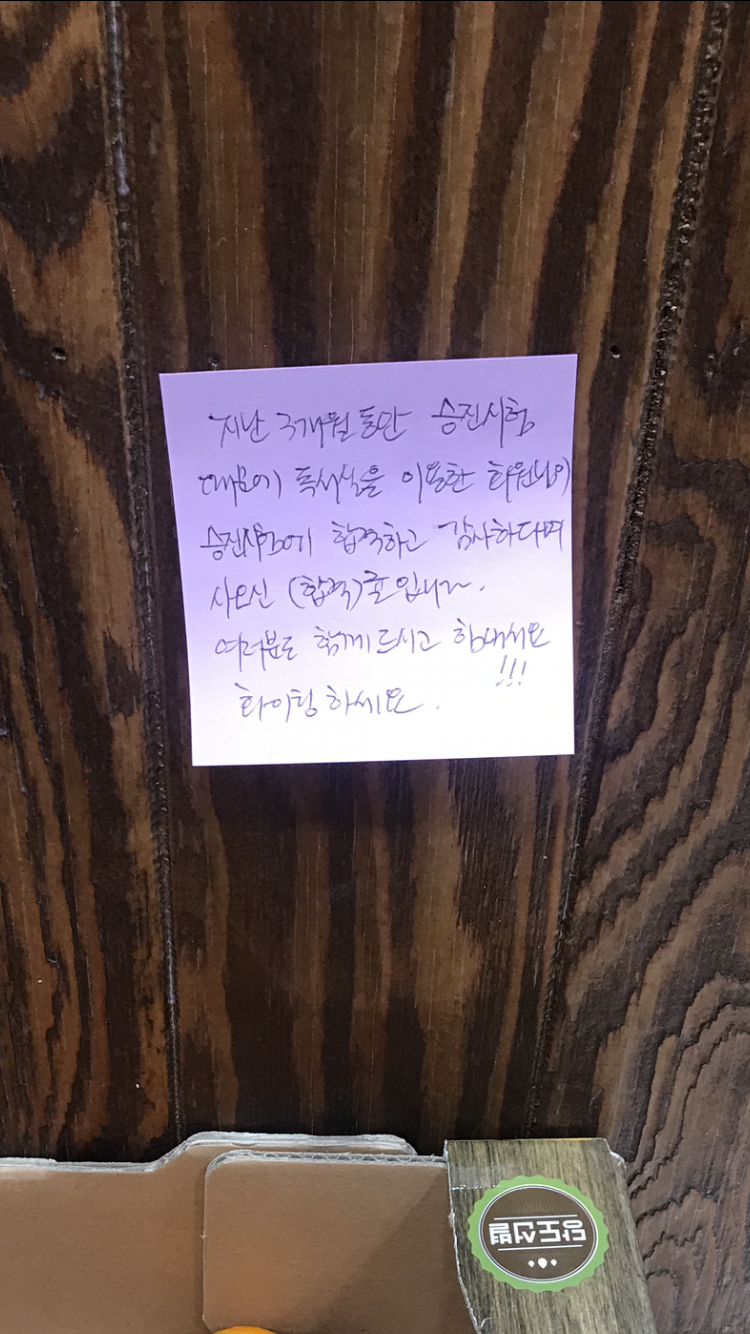 지난 3개월 동안 승진시험
때문에 독서실을 이용한 회원님이
승진시험에 합격하고 감사하다며
사오신 (합격)귤입니다.
여러분도 함께 드시고 힘내세요
!!!
화이팅 하세요.